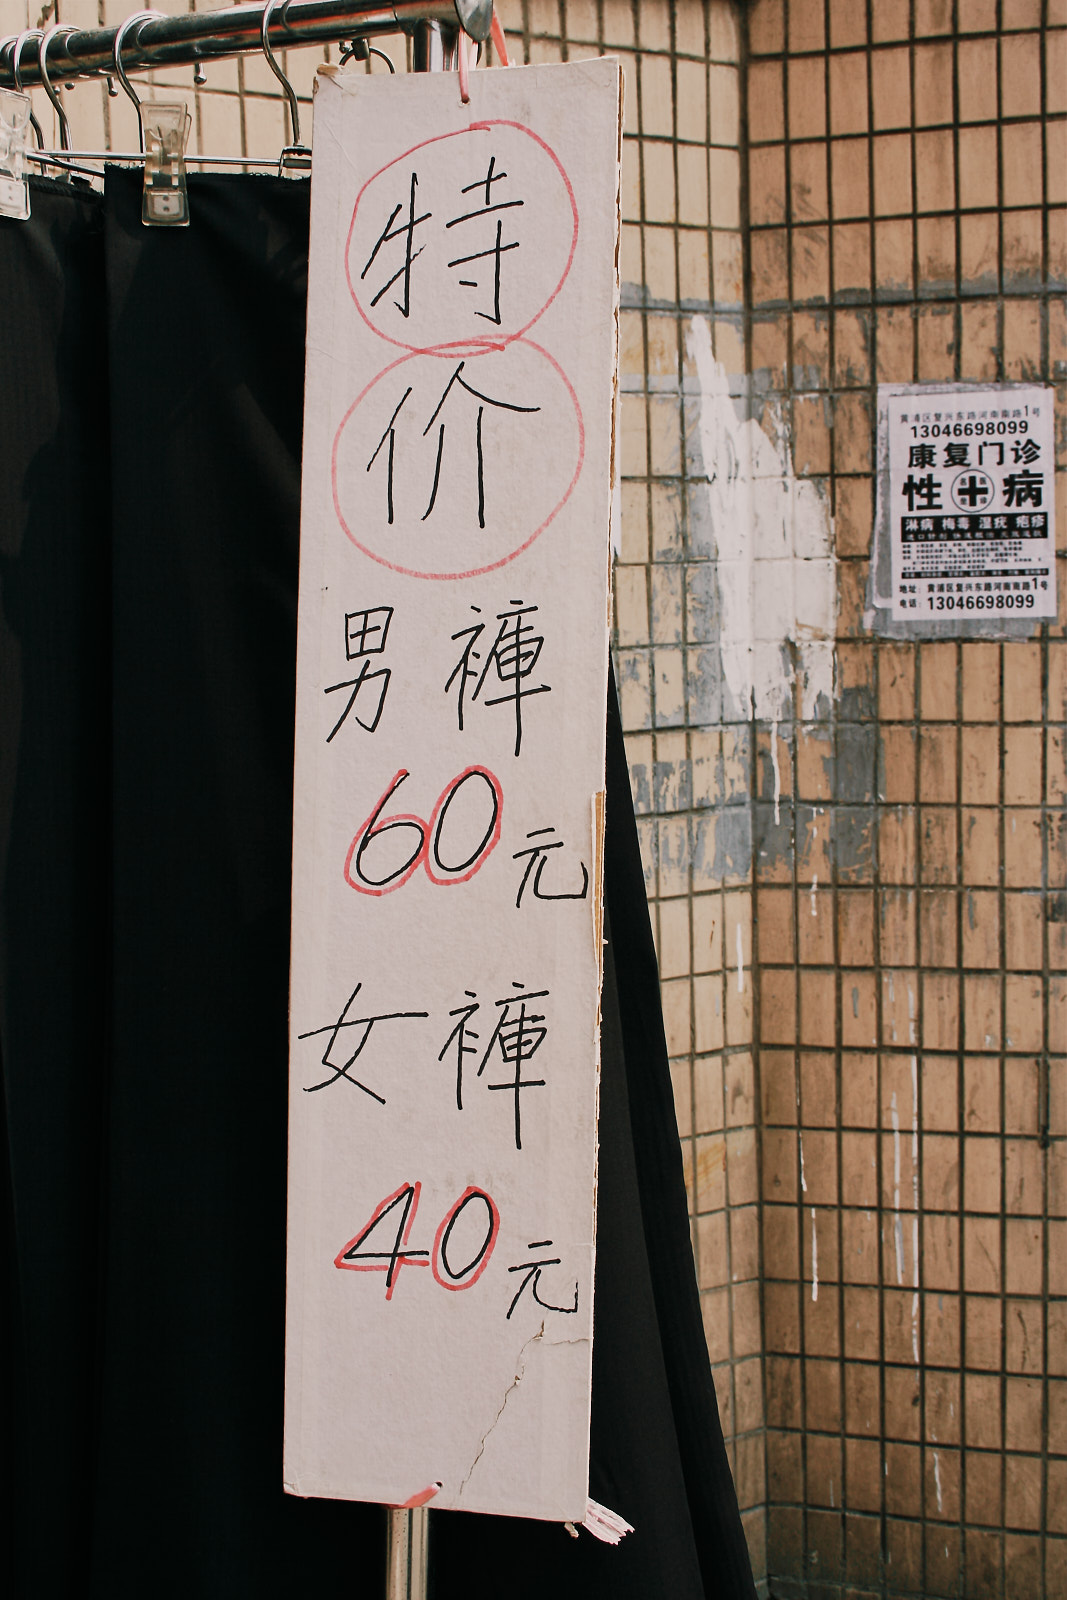 特
价
男褲
60元
女褲
40元
黄浦区复兴东路河南南路1号
13046698099
康复门诊
性 病
淋病 梅毒 湿疣 疱疹
地址：黄浦区复兴东路河南南路1号
电话：13046698099